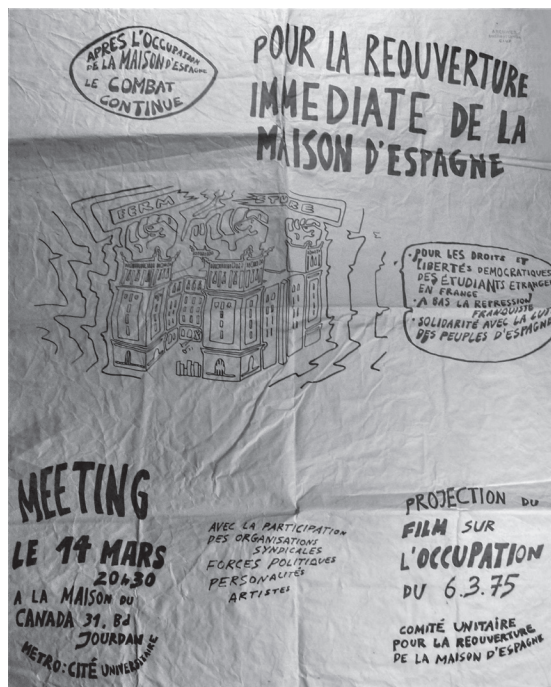 APRÈS L'OCCUPATION
DE LA MAISON D'ESPAGNE
LE COMBAT
CONTINUE
POUR LA REOUVERTURE
IMMEDIATE DE LA
MAISON D'ESPAGNE
FERM
TURE
POUR LES DROITS ET
LIBERTÉS DEMOCRATIQUES
DES ÉTUDIANTS ETRANGER
EN FRANCE
A BAS LA REPRESSION
FRANQUISTE
SOLIDARITÉ AVEC LA LUT
DES PEUPLES D'ESPAGNE
MEETING
LE 14 MARS
20h30
A LA MAISON DU
CANADA 31, Bd
JOURDAN
METRO: CITÉ UNIVERSITAIRE
AVEC LA PARTICIPATION
DES ORGANISATIONS
SYNDICALES
FORCES POLITIQUES
PERSONALITÉS
ARTISTES
PROJECTION DU
FILM SUR
L'OCCUPATION
DU 6.3.75
COMITÉ UNITAIRE
POUR LA REOUVERTURE
DE LA MAISON D'ESPAGNE